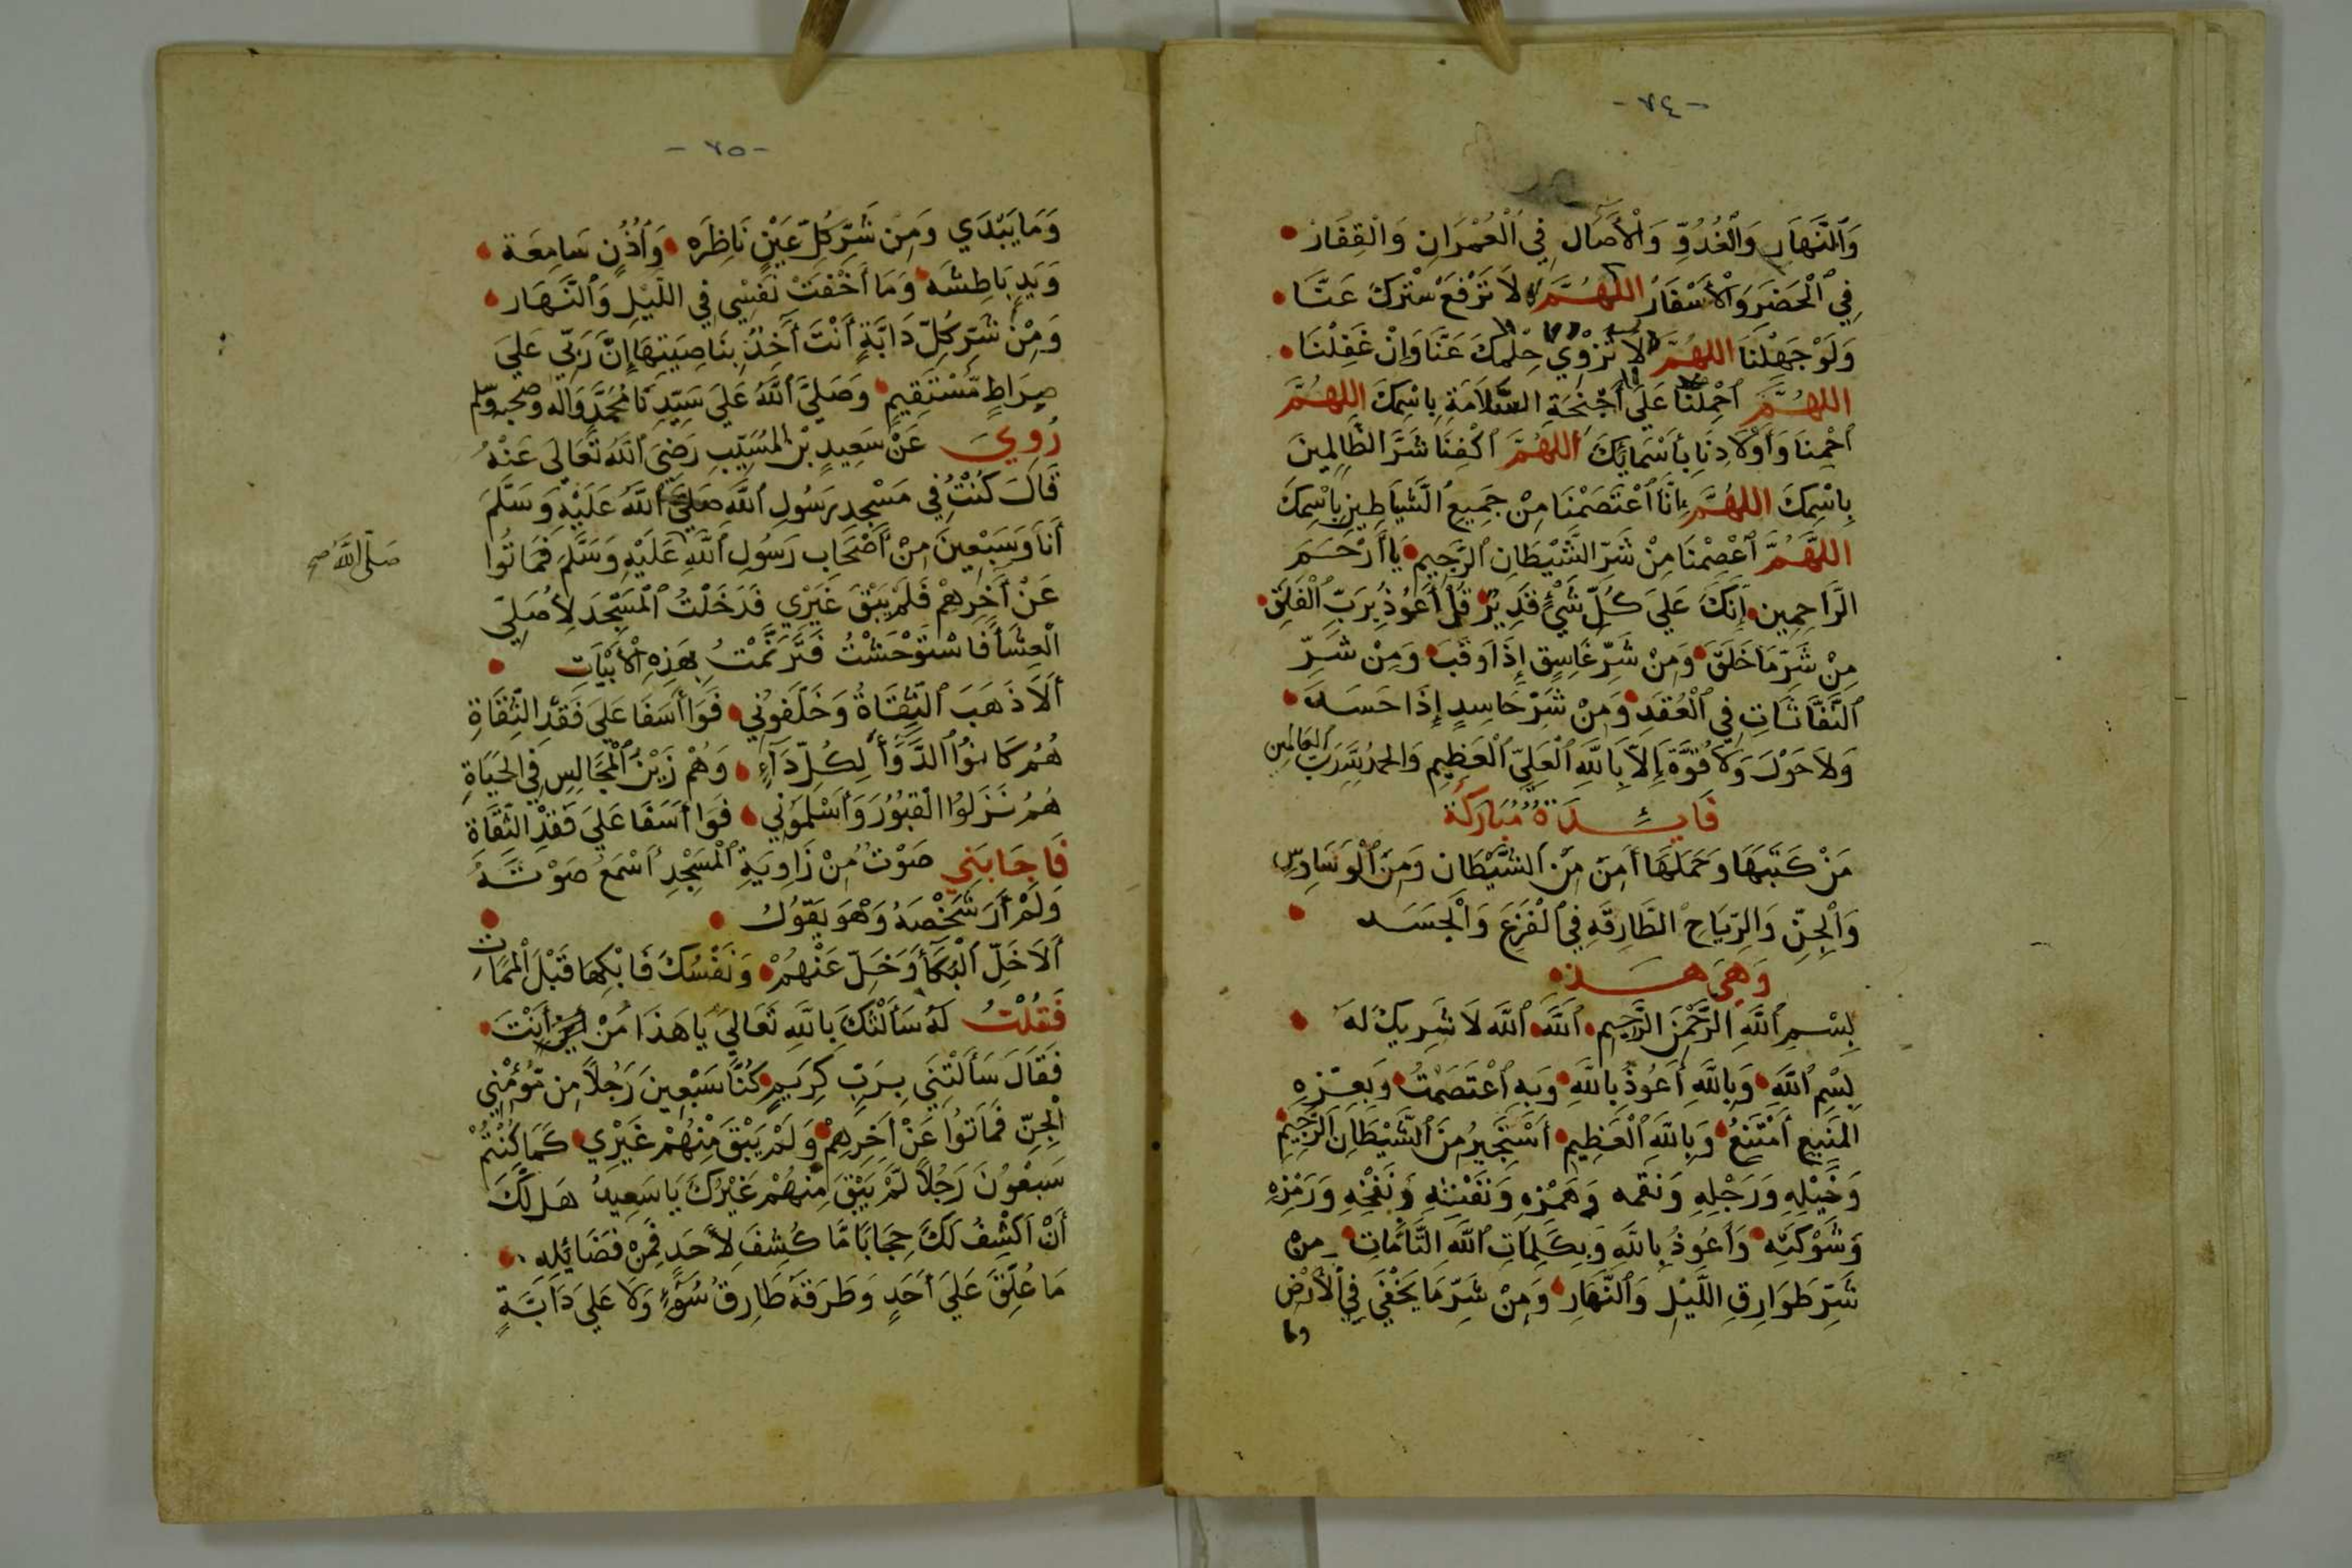 -٧٤-
وَٱلنَّهَارِ وَٱلْغُدُوِّ وَٱلْأَصَالِ فِي ٱلْعُمْرَانِ وَالْقِفَارْ
فِي ٱلْحَضَرَ وَٱلْأَسْفَارُ اللهُمَّ لَا تَرْفَعْ سَتْرَكَ عَنَّا
وَلَوْ جَهِلْنَا اللهُمَّ لَا تَزْوِي حِلْمَكَ عَنَّا وَإِنْ غَفِلْنَا
اللهُمَّ ٱحْمِلْنَا عَلَى أَجْنِحَةِ السَّلَامَةِ بِاسْمِكَ اللهُمَّ
ٱحْمِنَا وَأَوْلَادِنَا بِأَسْمَائِكَ اللهُمَّ ٱكْفِنَا شَرَّ الظَّالِمِينَ
بِاسْمِكَ اللهُمَّ إِنَّا ٱعْتَصَمْنَا مِنْ جَمِيعِ الشَّيَاطِينِ بِاسْمِكَ
اللهُمَّ ٱعْصِمْنَا مِنْ شَرِّ الشَّيْطَانِ ٱلرَّجِيمِ يَا أَرْحَمَ
الرَّاحِمِين إِنَّكَ عَلَى كُلِّ شَيْءٍ قَدِيرٌ قُلْ أَعُوذُ بِرَبِّ ٱلْفَلَقِ
مِنْ شَرِّ مَا خَلَقَ وَمِنْ شَرِّ غَاسِقٍ إِذَا وَقَبَ وَمِنْ شَرِّ
ٱلنَّفَّاثَاتِ فِي ٱلْعُقَدِ وَمِنْ شَرِّ حَاسِدٍ إِذَا حَسَدَ
وَلَا حَوْلَ وَلَا قُوَّةَ إِلَّا بِاللَّهِ ٱلْعَلِيِّ ٱلْعَظِيمِ وَالحمدُ لِلَّهِ رَبِّ العَالمين
فَائِدَةٌ مُبَارَكَةٌ
مَنْ كَتَبَهَا وَحَمَلَهَا أَمِنَ مِنَ ٱلشَّيْطَانِ وَمِنَ ٱلْوَسَاوِسِ
وَٱلْجِنِّ وَالرِّيَاحِ الطَّارِقَةِ فِي ٱلْفَزَعِ وَٱلْجَسَد
وَهِيَ هَذِه
بِسْمِ ٱللَّهِ الرَّحْمَنِ الرَّحِيمِ ٱللَّهُ ٱللَّه لَا شَرِيكَ لَهُ
بِسْمِ ٱللَّهِ وَبِاللَّهِ أَعُوذُ بِاللَّهِ وَبِهِ ٱعْتَصَمْتُ وَبِعِزِّهِ
المَنِيعِ أَمْتَنِعُ وَبِاللَّهِ ٱلْعَظِيمِ أَسْتَجِيرُ مِنَ ٱلشَّيْطَانِ الرَّجِيمِ
وَخَيْلِهِ وَرَجْلِهِ وَنقمه وَهَمْزِهِ وَنَفْثِهِ وَنَفْخِهِ وَرَمْزِهِ
وَشَوْكَتِهِ وَأَعُوذُ بِاللَّهِ وَبِكَلِمَاتِ ٱللَّهِ التَّامَّاتِ مِنْ
شَرِّ طَوَارِقِ اللَّيْلِ وَٱلنَّهَارِ وَمِنْ شَرِّ مَا يَخْفَى فِي ٱلْأَرْضِ
وما
-٧٥-
وَمَا يَبْدَي وَمِنْ شَرِّ كُلِّ عَيْنٍ نَاظِرَه وَأُذُنٍ سَامِعَة
وَيَدٍ بَاطِشَة وَمَا أَخْفَتْ نَفْسِي فِي اللَّيْلِ وَٱلنَّهَارِ
وَمِنْ شَرِّ كُلِّ دَابَّةٍ أَنْتَ أَخِذٌ بِنَاصِيَتِهَا إِنَّ رَبِّي عَلَى
صِرَاطٍ مُّسْتَقِيمٍ وَصَلَّى ٱللَّهُ عَلَى سَيِّدِنَا مُحَمَّدٍ وَآله وَصحبه وسلم
رُوِيَ عَنْ سَعِيدٍ بْنِ المُسَيِّبِ رَضِيَ ٱللَّهُ تَعَالَى عَنْهُ
قَالَ كُنْتُ فِي مَسْجِدِ رَسُولِ ٱللَّهِ صَلَّى ٱللَّهُ عَلَيْهِ وَسَلَّمَ
أَنَا وَسَبْعِينَ مِنْ أَصْحَابِ رَسُولِ ٱللَّهِ عَلَيْهِ وَسَلَّمَ فَمَاتُوا
صَلَّى اللَّهُ صح
عَنْ أَخِرِهِمْ فَلَمْ يَبْقَ غَيْرِي فَدَخَلْتُ ٱلْمَسْجِدَ لِأُصَلِّي
ٱلْعِشَأَ فَاسْتَوْحَشْتُ فَتَرَنَّمْتُ بِهَذِهِ ٱلْأَبْيَاتِ
أَلَا ذَهَبَ ٱلثِّقَاةُ وَخَلَّفُونِي فَوَا أَسَفَا عَلَى فَقْدِ الثِّقَاةِ
هُمْ كَانُوا ٱلدَّوَأَ لِكُلِّ دَآءٍ وَهُمْ زَيْنُ ٱلْمَجَالِسِ فِي الحَيَاةِ
هُمُ نَزَلُوا الْقُبُورَ وَأَسْلَمُونِي فَوَا أَسَفَا عَلَى فَقْدِ الثِّقَاةِ
فَاجَابَنِي صَوْتٌ مِنْ زَاوِيَةِ ٱلْمَسْجِدِ أَسْمَعُ صَوْتَهُ
وَلَمْ أَرَ شَخْصَهُ وَهْوَ يَقُولُ
أَلَا خَلِّ ٱلْبُكَأَ وَخَلِّ عَنْهُمْ وَنَفْسُكَ فَابْكِهَا قَبْلَ ٱلْمَمَاتِ
فَقُلْتُ لَهُ سَأَلْتُكَ بِاللَّهِ تَعَالَى يَا هَذَا مَنْ أَنْتَ
فَقَالَ سَأَلْتَنِي بِرَبٍّ كَرِيمٍ كُنَّا سَبْعِينَ رَجُلًا مِن مُّؤْمِنِي
ٱلْجِنِّ فَمَاتُوا عَنْ أَخِرِهِمْ وَلَمْ يَبْقَ مِنْهُمْ غَيْرِي كَمَا كُنْتُمْ
سَبْعُونَ رَجُلًا لَمْ يَبْقَ مِنْهُمْ غَيْرُكَ يَا سَعِيدُ هَل لَّكَ
أَنْ أَكْشِفُ لَكَ حِجَابًا مَّا كُشِفَ لِأَحَدٍ فَمِنْ فَضَائِلِهِ
مَا عُلِّقَ عَلَى أَحَدٍ وَطَرَقَهُ طَارِقُ سُوْءٍ وَلَا عَلَى دَآبَّةٍ